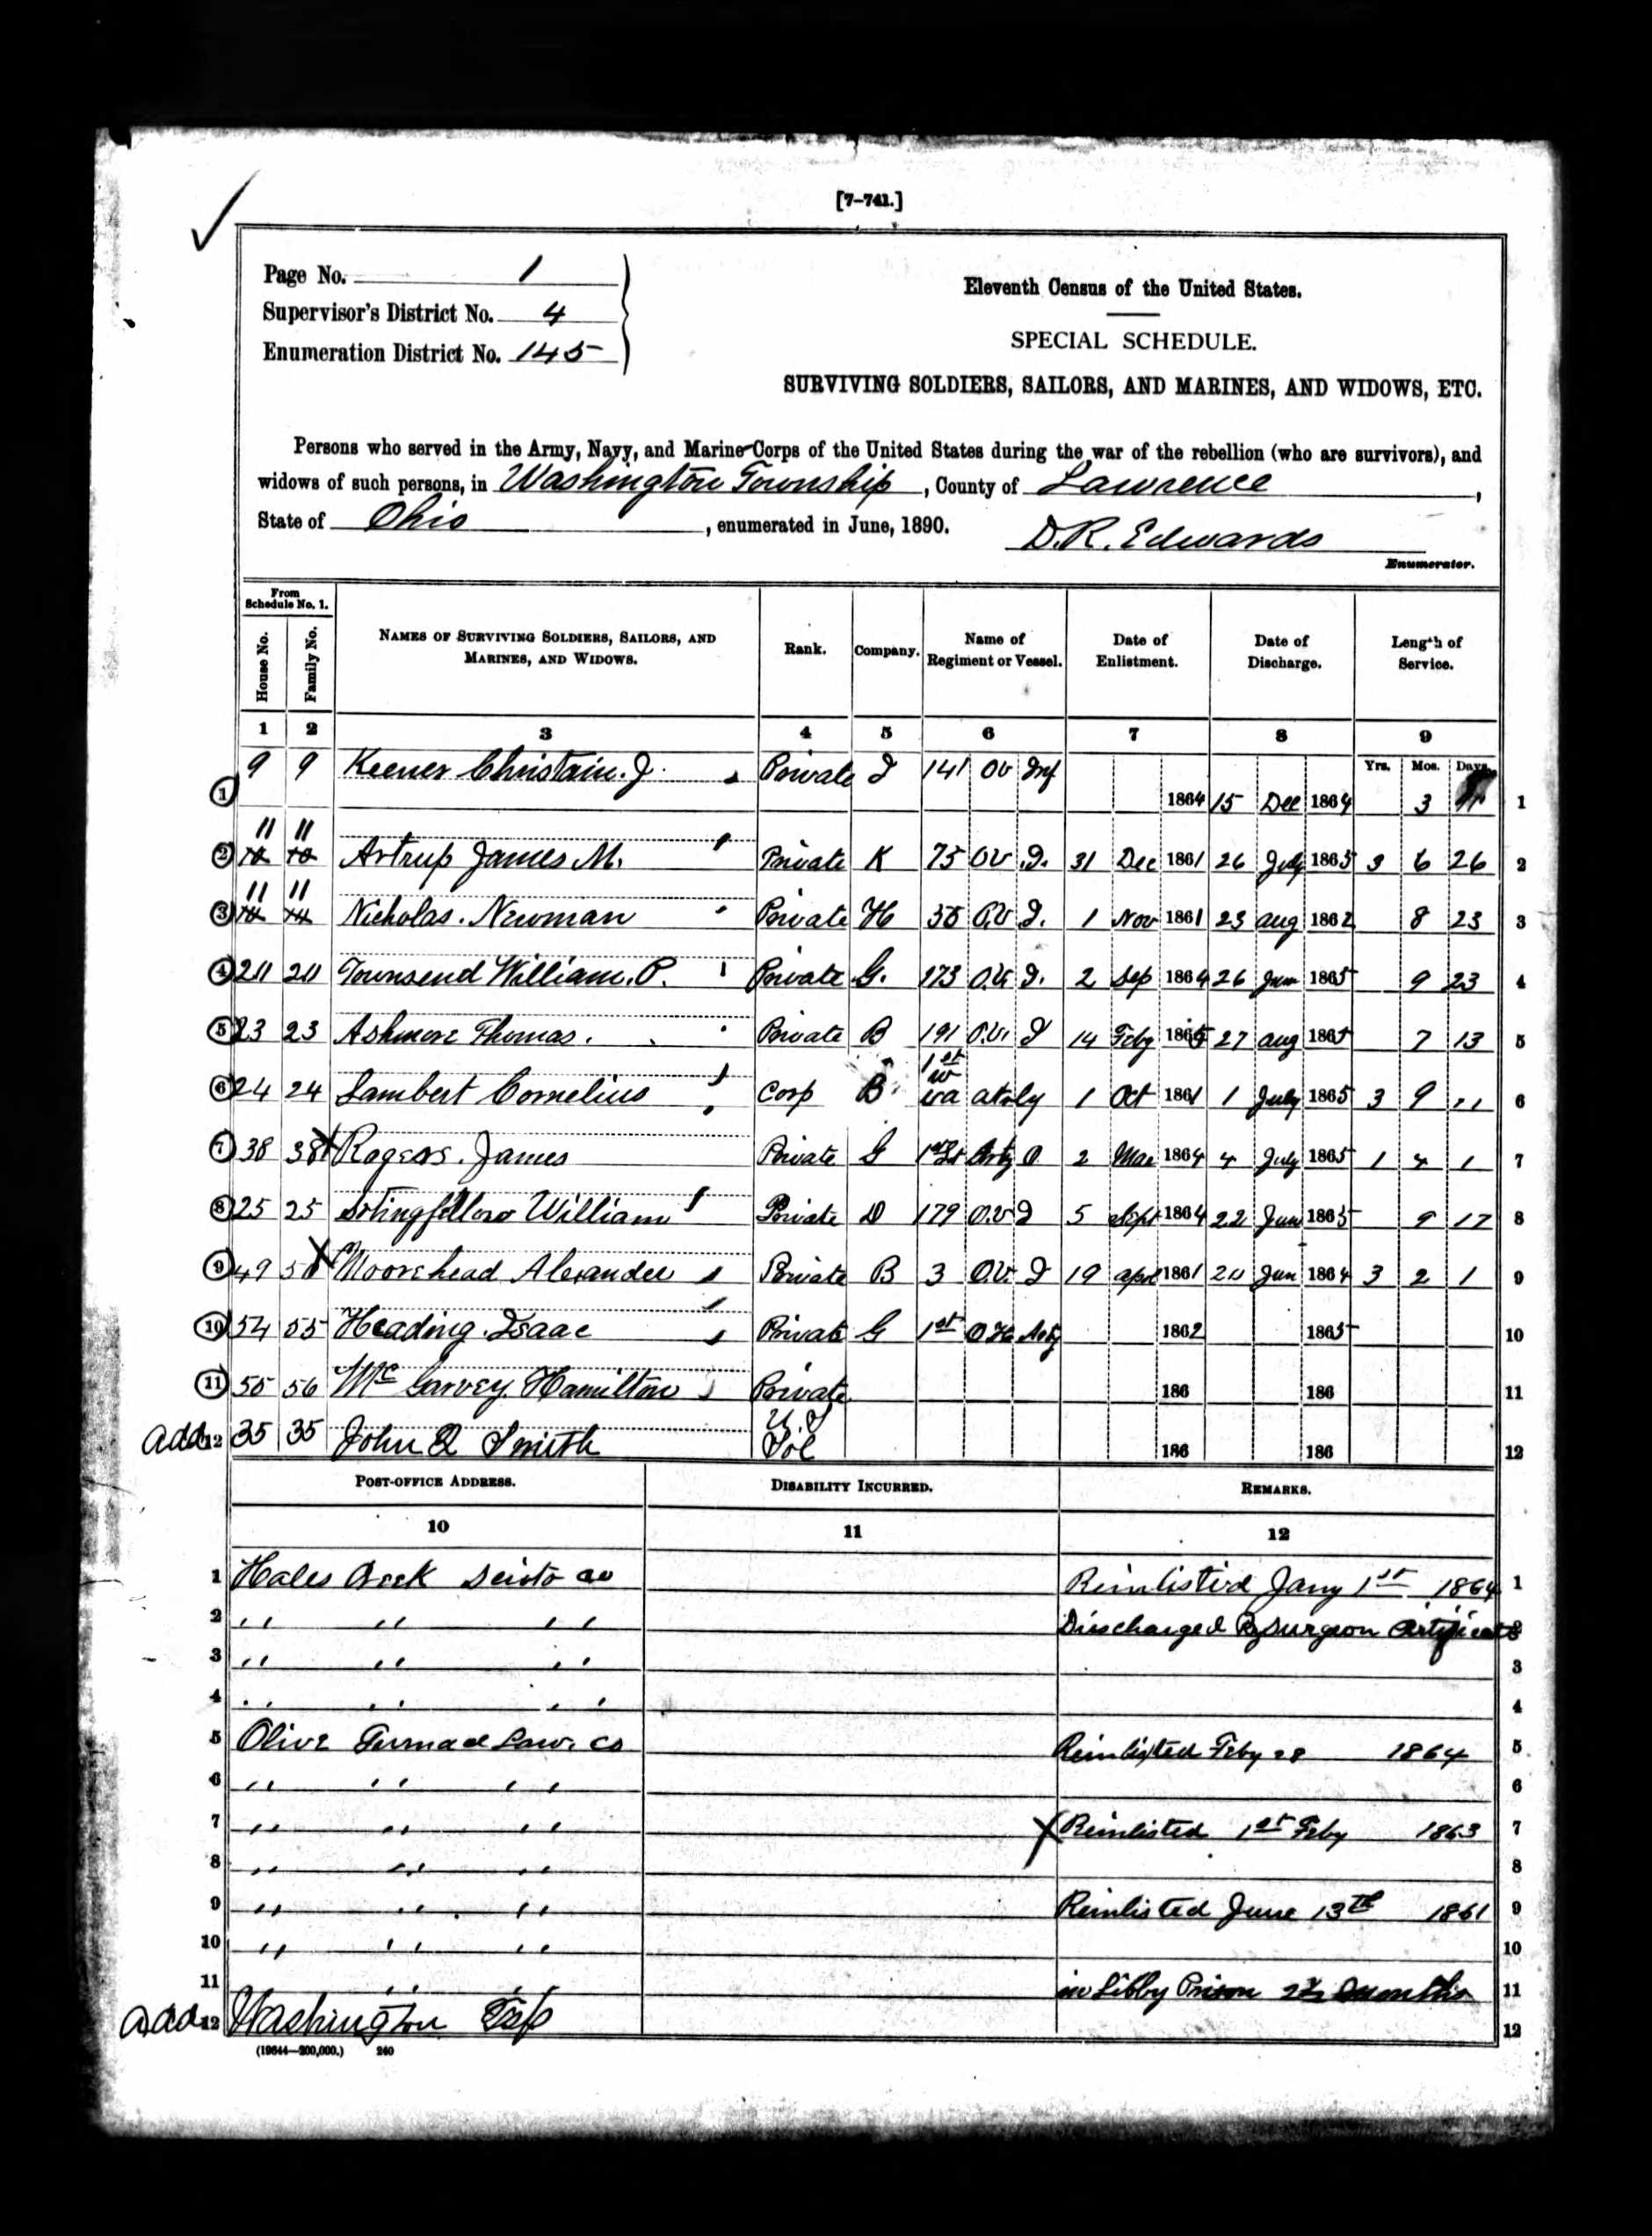 [7–741.]
Page No. 1
Supervisor's District No. 4
Enumeration District No. 145
Eleventh Census of the United States.
SPECIAL SCHEDULE.
SURVIVING SOLDIERS, SAILORS, AND MARINES, AND WIDOWS, ETC.
Persons who served in the Army, Navy, and Marine Corps of the United States during the war of the rebellion (who are survivors), and
widows of such persons, in Washington Township, County of Lawrence,
State of Ohio, enumerated in June, 1890. D.R. Edwards
Enumerator.
From Schedule No. 1.
House No. Family No. NAMES OF SURVIVING SOLDIERS, SAILORS, AND MARINES, AND WIDOWS. Rank. Company. Name of Regiment or Vessel. Date of Enlistment. Date of Discharge. Length of Service.
1 2 3 4 5 6 7 8 9
Yrs. Mos. Days.
1 9 9 Keener Christain. J. Private I 141 OV Inf 1864 15 Dec 1864 3 1
2 11 11 Artrup James M. Private K 75 O.V. I. 31 Dec 1861 26 July 1865 3 6 26 2
3 11 11 Nicholas. Newman Private H 58 O.V I. 1 Nov 1861 23 aug 1862 8 23 3
4 20 20 Townsend William. P. Private G. 173 O.V. I. 2 Sep 1864 26 Jun 1865 9 23 4
5 23 23 Ashmore Thomas. Private B 191 O.V. I 14 Feby 1865 27 aug 1865 7 13 5
6 24 24 Lambert Cornelius Corp B 1st w va 1 Oct 1861 1 July 1865 3 9 6
7 38 38 Rogers. James Private G 1st Arty O 2 Mar 1864 4 July 1865 1 4 1 7
8 25 25 Stingfellow William Private D 179 O.V I 5 Sept 1864 22 Jun 1865 9 17 8
9 49 50 Moorehead Alexander Private B 3 O.V. I 19 apr 1861 20 Jun 1864 3 2 1 9
10 54 55 Heading. Isaac Private G 1st O H Arty 1862 1865 10
11 55 56 Mc Garvey. Hamilton Private 186 186 11
add 12 35 35 John Q Smith U.S Sol 186 186 12
POST-OFFICE ADDRESS. DISABILITY INCURRED. REMARKS.
10 11 12
1 Hales Creek Scioto co Reinlisted Jany 1st 1864 1
2 " " " Discharged By Surgeon Certificate 2
3 " " " 3
4 " " " 4
5 Olive Furnace Law. Co Reinlisted Feby 28 1864 5
6 " " " 6
7 " " " X Reinlisted 1st Feby 1863 7
8 " " " 8
9 " " " Reinlisted June 13th 1861 9
10 " " " 10
11 " " in Libby Prison months 11
add 12 Washington Tsp 12
(19644—200,000.) 240